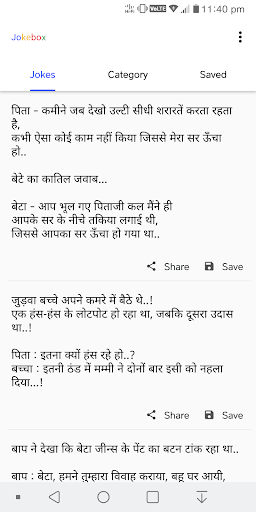 VoLTE 11:40 pm
Jokebox
Jokes Category Saved
पिता - कमीने जब देखो उल्टी सीधी शरारतें करता रहता
है,
कभी ऐसा कोई काम नहीं किया जिससे मेरा सर ऊँचा
हो..
बेटे का कातिल जवाब...
बेटा - आप भूल गए पिताजी कल मैंने ही
आपके सर के नीचे तकिया लगाई थी,
जिससे आपका सर ऊँचा हो गया था..
Share Save
जुड़वा बच्चे अपने कमरे में बैठे थे..!
एक हंस-हंस के लोटपोट हो रहा था, जबकि दूसरा उदास
था..!
पिता : इतना क्यों हंस रहे हो..?
बच्चा : इतनी ठंड में मम्मी ने दोनों बार इसी को नहला
दिया...!
Share Save
बाप ने देखा कि बेटा जीन्स के पेंट का बटन टांक रहा था..
बाप : बेटा, हमने तुम्हारा विवाह कराया, बहू घर आयी,